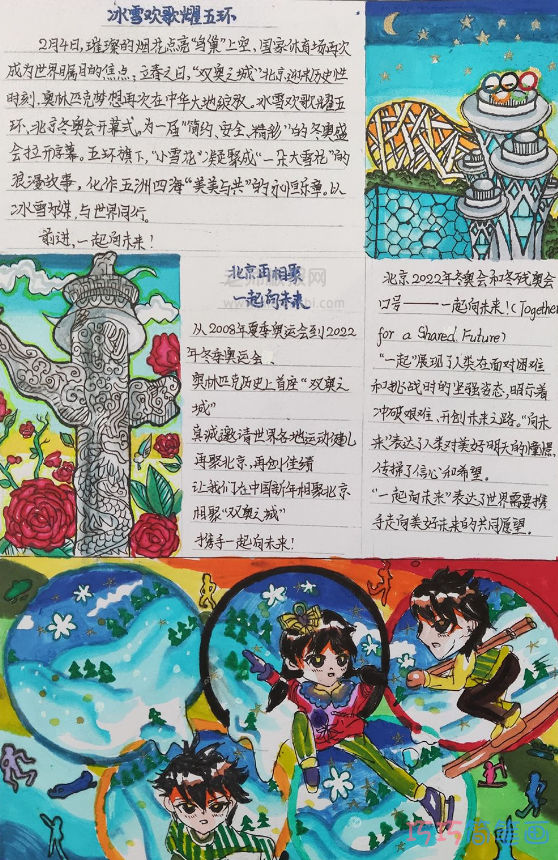 冰雪欢歌耀五环
2月4日,璀璨的烟花点亮“鸟巢”上空,国家体育场再次
成为世界瞩目的焦点;立春之日,“双奥之城”北京迎来历史性
时刻,奥林匹克梦想再次在中华大地绽放。冰雪欢歌耀五
环,北京冬奥会开幕式。为一届“简约、安全、精彩”的冬奥盛
会拉开序幕。五环旗下,“小雪花”凝聚成“一朵大雪花”的
浪漫故事,化作五洲四海“美美与共”的永恒乐章。以
冰雪为媒,与世界同行。
前进,一起向未来!
北京再相聚
一起向未来
从2008年夏季奥运会到2022
年冬季奥运会、
奥林匹克历史上首座“双奥之
城”
真诚邀请世界各地运动健儿
再聚北京,再创佳绩
让我们在中国新年相聚北京
相聚“双奥之城”
携手一起向未来!
北京2022年冬奥会和冬残奥会
口号——一起向未来!(Together
for a Shared Future)
“一起”展现了人类在面对困难
和挑战时的坚强姿态,明示着
冲破艰难、开创未来之路。“向未
来”表达了人类对美好明天的憧憬,
传择了信心和希望。
“一起向未来”表达了世界需要携
手走向美好未来的共同愿望。
巧巧简笔画